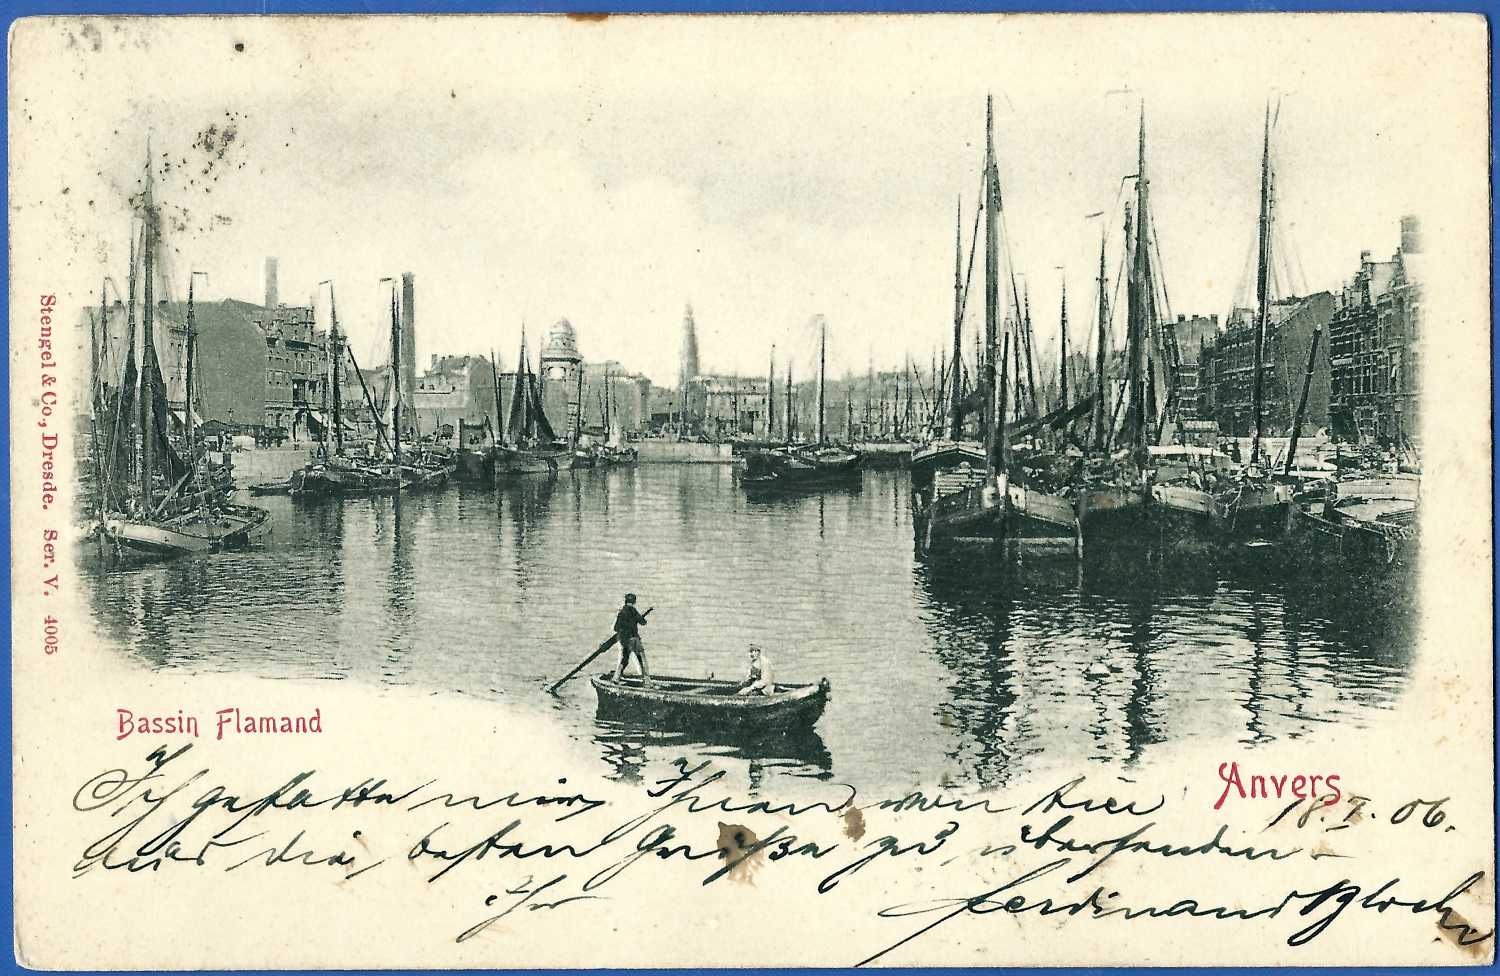 Stengel & Co., Dresde. Ser. V. 4005
Bassin Flamand
Anvers
Ich gestatte mir, Ihnen von hier 18.I.06.
aus die besten Grüße zu übersenden
Ihr
Ferdinand Bloch